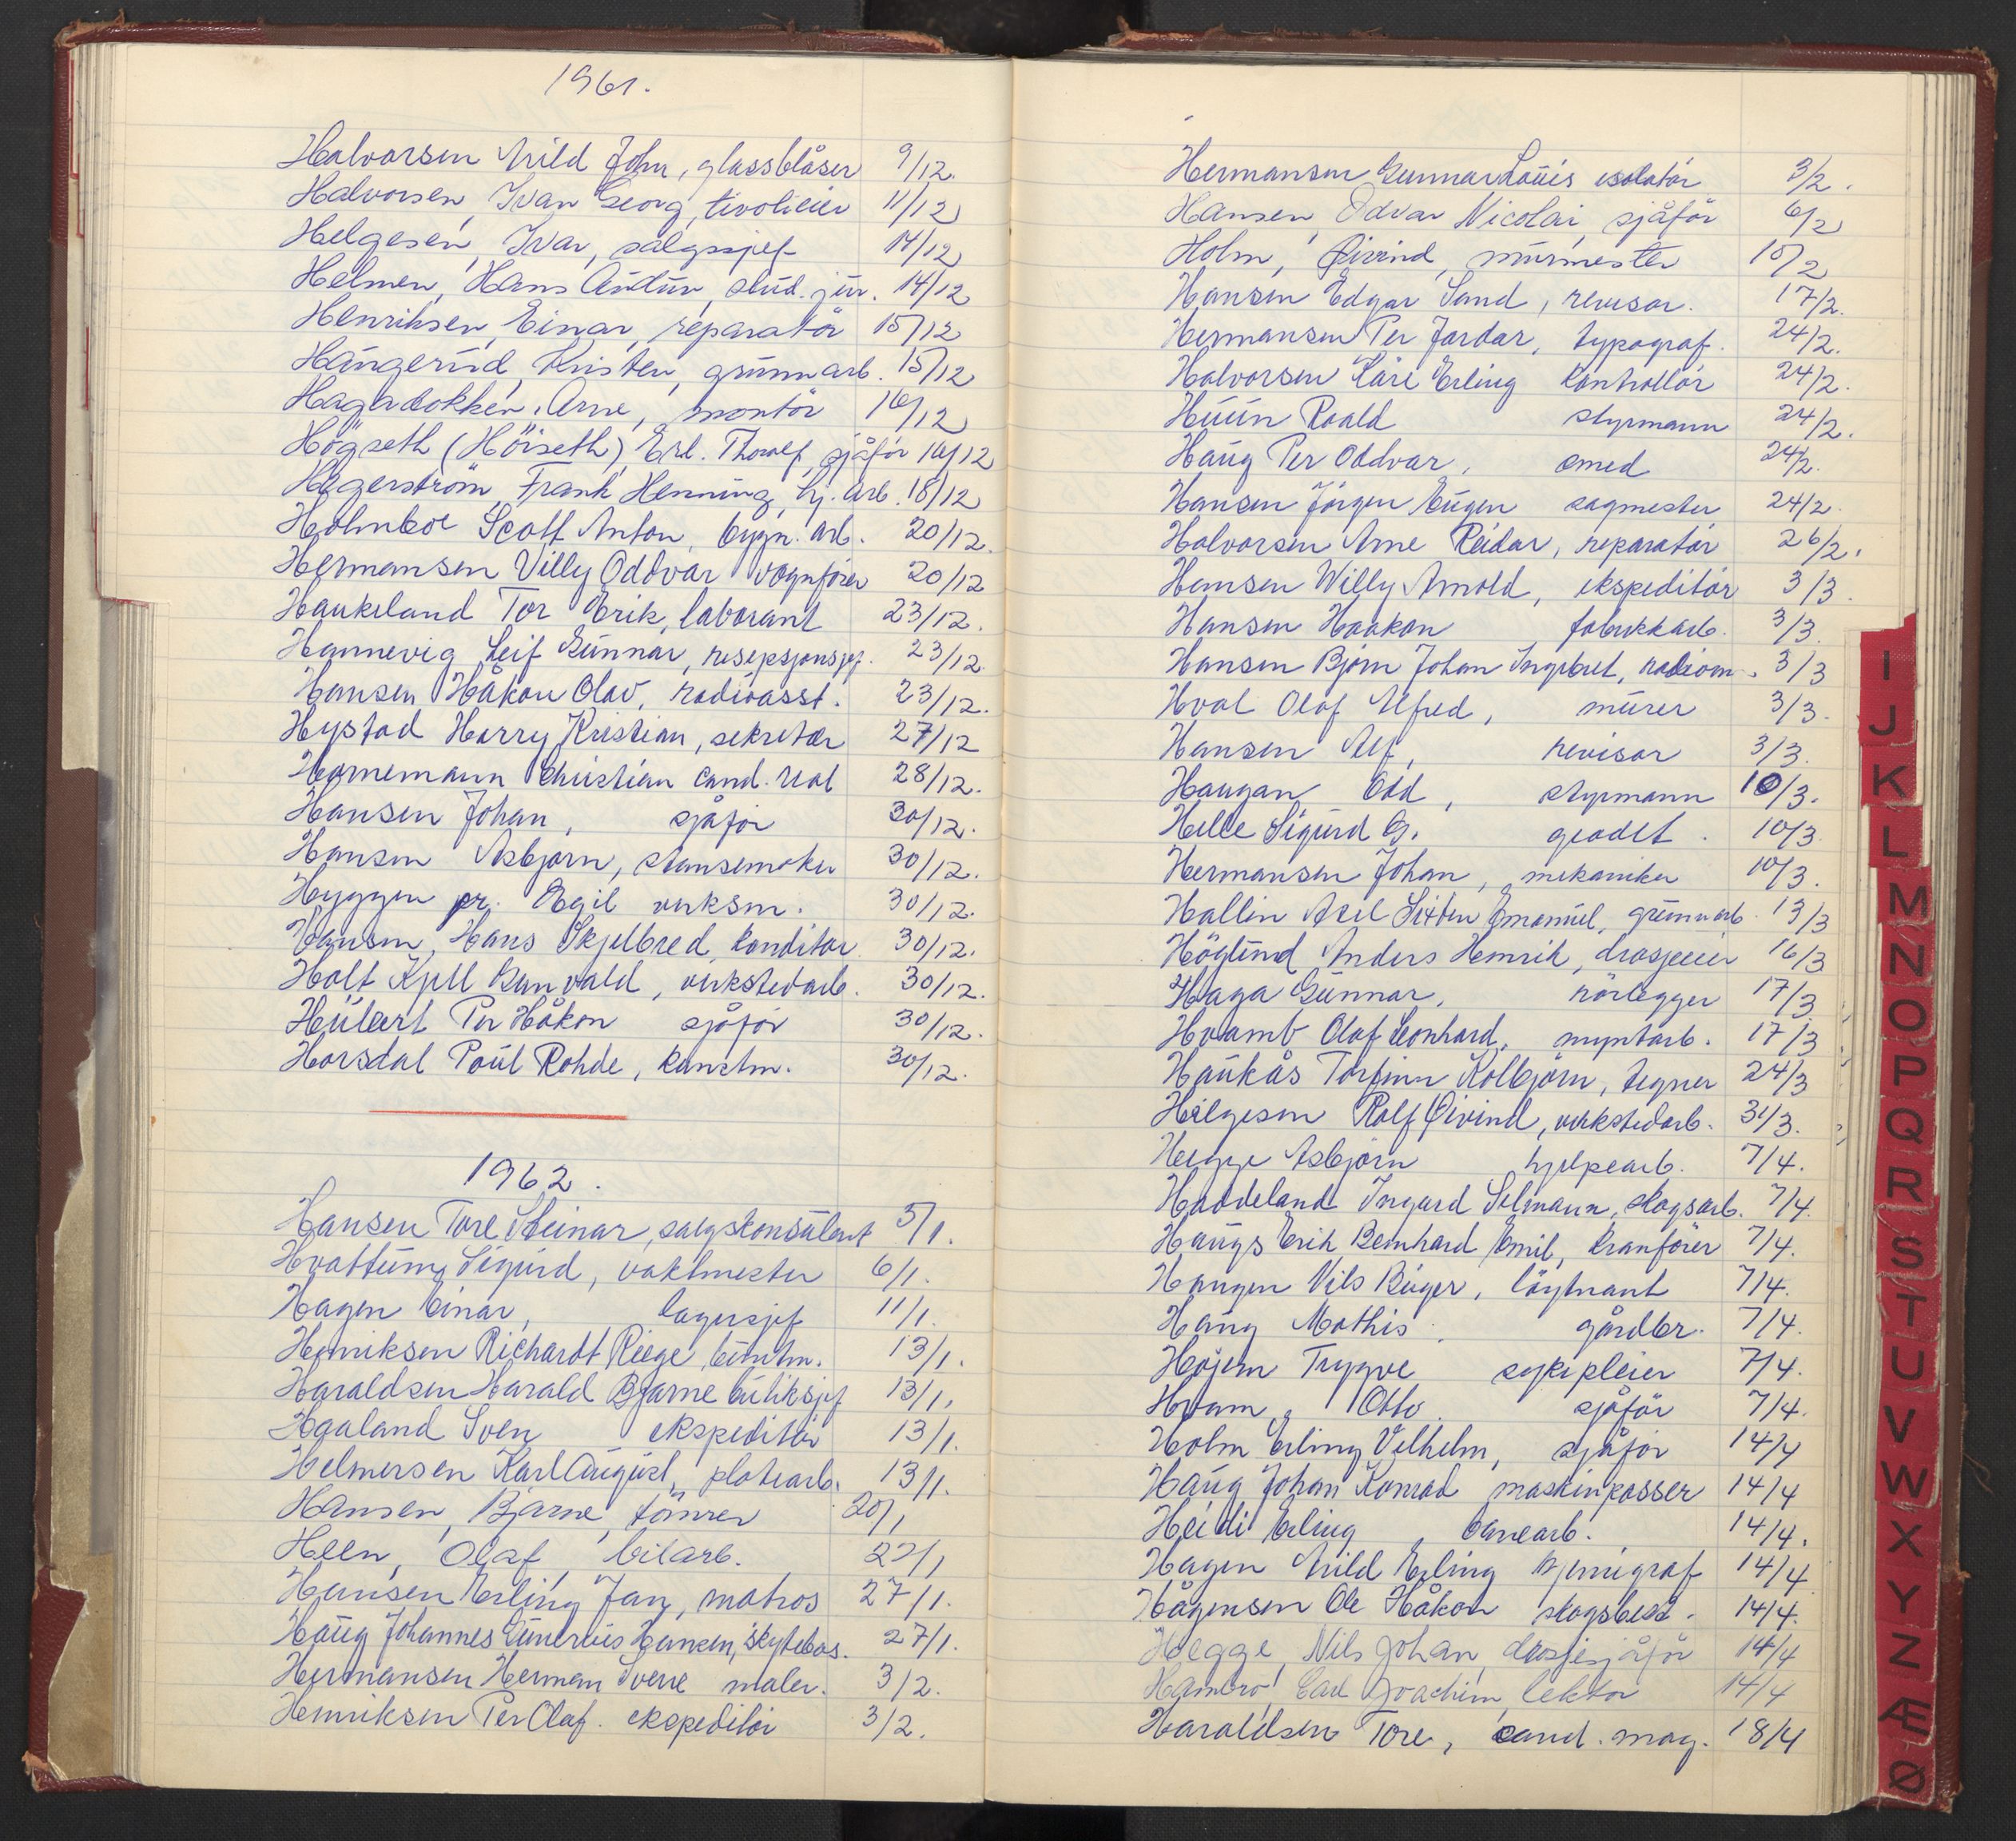 1961.
Halvorsen Arild John, glassblåser 9/12.
Halvorsen, Ivan Georg, tivolieier 11/12
Helgesen, Ivar, salgssjef 14/12
Helmen, Hans Antun, stud. jur. 14/12
Henriksen, Einar, reparatör 15/12
Haugerud, Kristen, grunnarb. 15/12
Hagabakken, Arne, montör 16/12
Högseth (Höiseth), Erl. Thorolf, sjåför 16/12
Hägerström, Frank Henning, hj. arb. 18/12
Holmboe Scott Anton, bygn. arb. 20/12.
Hermansen Villy Oddvar vognförer 20/12
Haukeland Tor Erik, laborant 23/12.
Hannevig Leif Gunnar, resepsjonsjef. 23/12.
Hansen Håkon Olav, radioasst. 23/12.
Hystad Harry Kristian, sekretær 27/12
Hornemann Christian cand. real 28/12.
Hansen Johan, sjåför 30/12.
Hansen Asbjörn, stansemaker 30/12.
Hyggen pr. Egil verksm. 30/12.
Hansen, Hans Skjelbred, konditor 30/12.
Holt Kjell Ranvald, verkstedarb. 30/12.
Hülert Per Håkon sjåför 30/12.
Horsdal Poul Rohde, kunstm. 30/12.
1962.
Hansen Tore Steinar, salgskonsulent 5/1.
Hvattum Sigurd, vaktmester 6/1.
Hagen Einar, lagersjef 11/1.
Henriksen Richardt Riege, bestm. 13/1.
Haraldsen Harald Bjarne butiksjef 13/1.
Haaland Sven ekspeditör 13/1.
Helmersen Karl August, platearb. 13/1.
Hansen, Bjarne, tömrer 20/1
Heen, Olaf, bilarb. 27/1
Hansen Erling Jan, matros 27/1.
Haug Johannes Gunerius Hansen, skytebas. 27/1.
Hermansen Herman Sverre maler. 3/2.
Henriksen Per Olaf. ekspeditör 3/2.
Hermansen Gunnar Louis isolatör 3/2.
Hansen, Odvar Nicolai, sjåför 6/2
Holm, Øivind, murmester 15/2
Hansen Edgar Sand, revisor. 17/2.
Hermansen Per Jardar, typograf. 24/2.
Halvorsen Kåre Erling kontrollör 24/2.
Huun Roald styrmann 24/2.
Haug Per Oddvar, smed 24/2.
Hansen Jörgen Eugen sagmester 24/2.
Halvorsen Arne Reidar, reparatör 26/2.
Hansen Willy Arnold, ekspeditör 3/3.
Hansen Haakon fabrikkarb. 3/3.
Hansen Björn Johan Ingebret, radiom. 3/3
Hval Olaf Alfred, murer 3/3.
Hansen Alf, revisor 3/3.
Haugan Odd, styrmann 10/3.
Helle Sigurd G. geodet. 10/3.
Hermansen Johan, mekaniker 10/3.
Hallin Axel Sixten Emanuel, grunnarb. 13/3
Höglund Anders Henrik, drosjeeier 16/3
Haga Gunnar, rörlegger 17/3
Hvamb Olaf Leonhard, myntarb. 17/3
Haukås Torfinn Kolbjörn, tegner 24/3
Helgesen Rolf Øivind, verkstedarb. 31/3.
Hegge Asbjörn hjelpearb. 7/4.
Haddeland Ingvard Selmann, skogsarb. 7/4.
Haugs Erik Bernhard Emil, kranförer 7/4.
Haugen Nils Birger, löytnant 7/4.
Haug Mathis gårdbr. 7/4.
Höjem Trygve sykepleier 7/4.
Hvam, Otto sjåför 7/4.
Holm Erling Vilhelm, sjåför 14/4
Haug Johan Konrad maskinpasser 14/4
Heidi Erling banearb. 14/4.
Hagen Arild Erling kjemigraf 14/4
Hågensen Ole Håkon skogsbest. 14/4.
Hegge, Nils Johan, drosjesjåför 14/4
Hambro, Carl Joachim, lektor 14/4
Haraldsen Tore, cand. mag. 18/4
I
J
K
L
M
N
O
P
Q
R
S
T
U
V
W
X
Y
Z
Æ
Ø